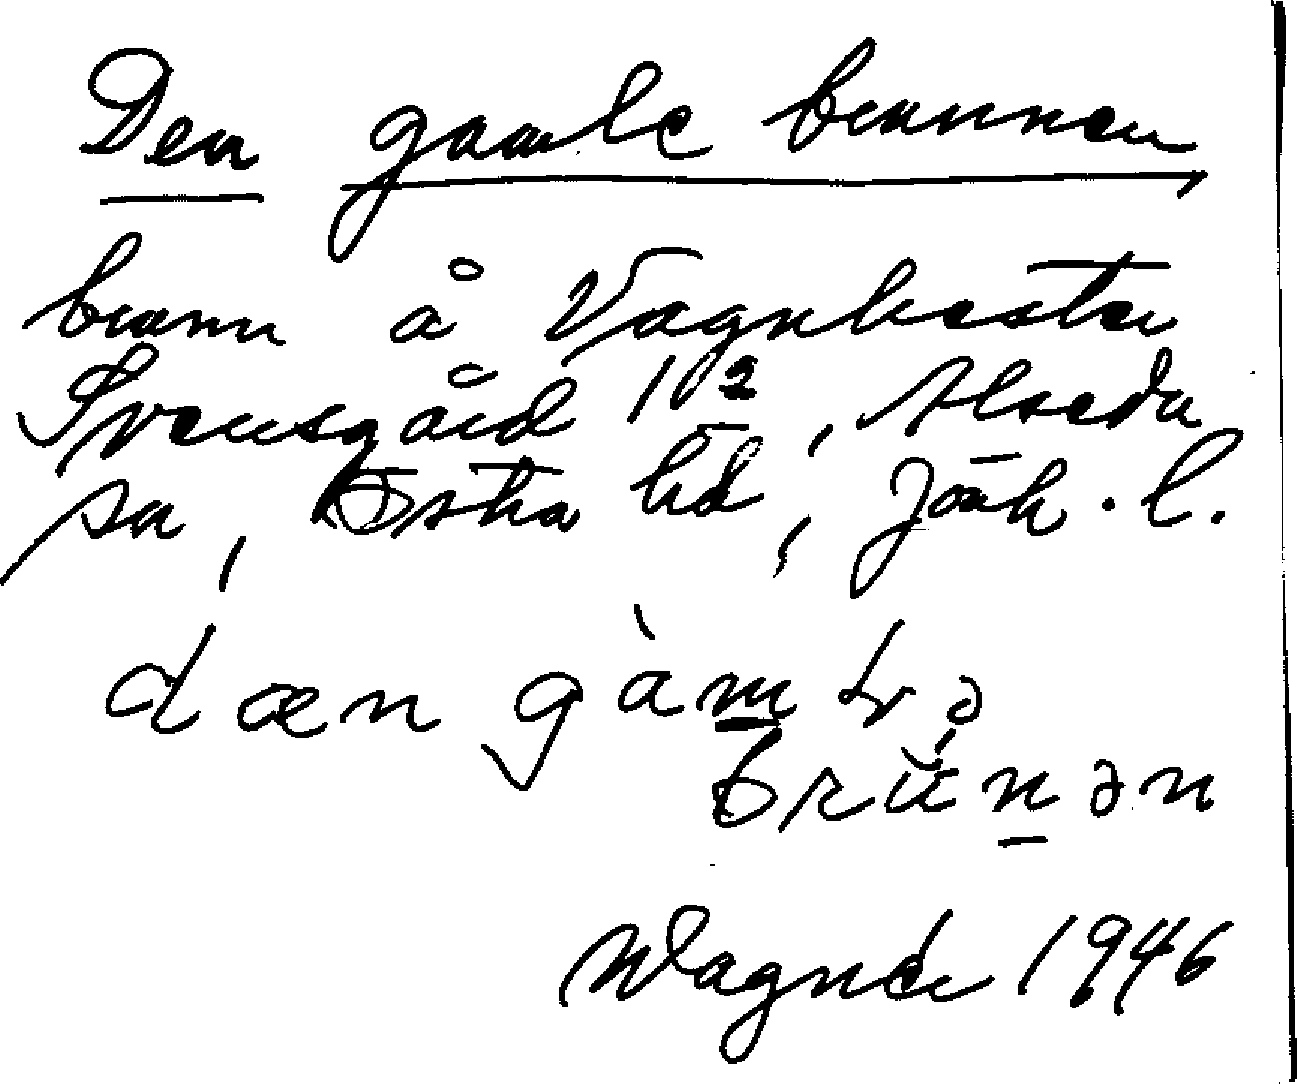 Den gamle brunnen
brunn å Vagnhester
Svensgård 1⁰², Alseda
sn, Östra hd, Jönk. l.
dæn gàmlə
brunən
Wagnér 1946